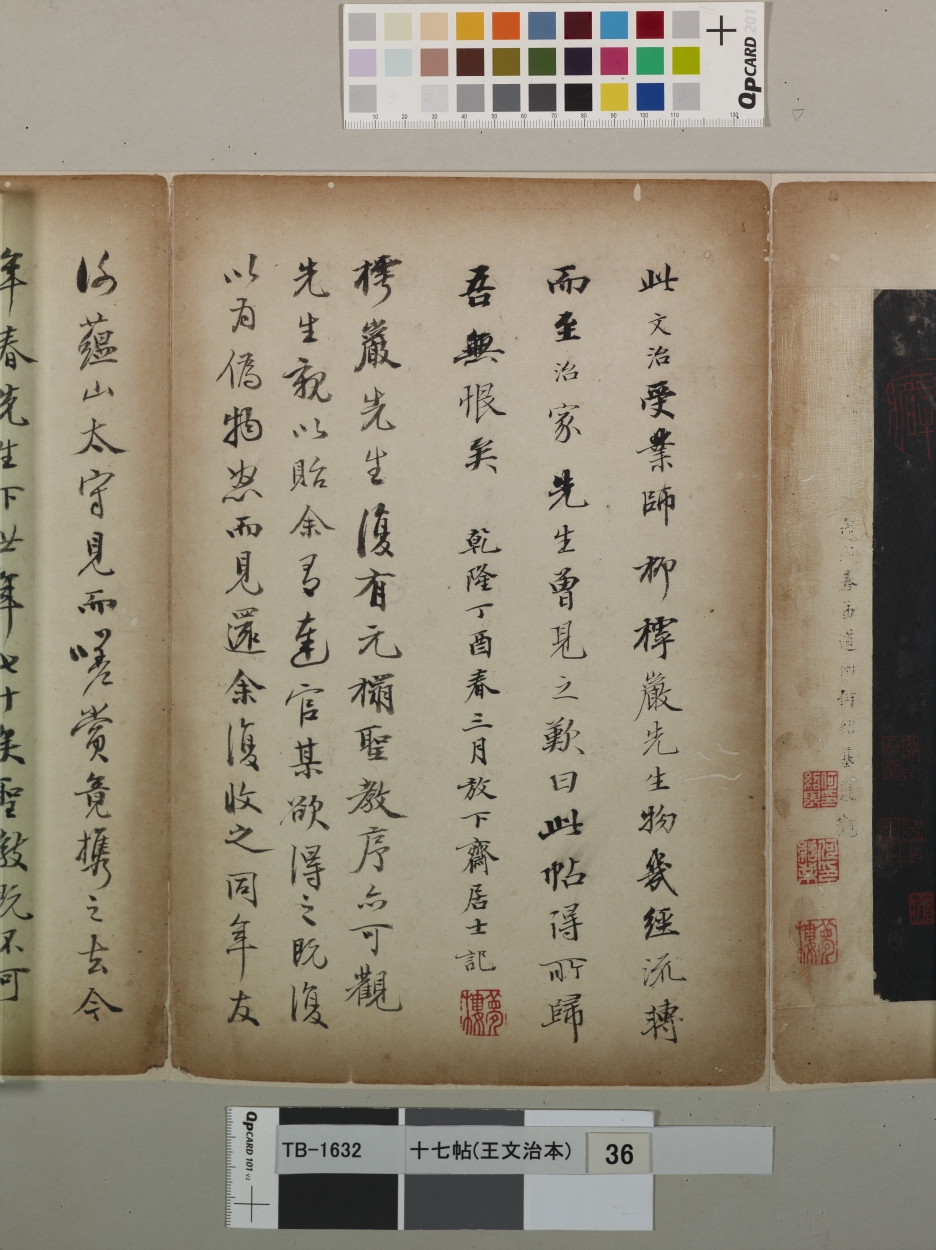 QpCARD 201
10 20 30 40 50 60 70 80 90 100 110 120 130
此文治受業師 柳樗巖先生物幾經流轉
而至治家先生曾見之歎曰此帖得所歸
吾無恨矣 乾隆丁酉春三月放下齋居士記
夢樓
樗巖先生復有元榻聖教序亦可觀
先生親以貽余有達官某欲得之既復
以為偽物忽而見還余復收之同年友
徐蘊山太守見而嗟賞竟攜之去今
年春先生下世年七十矣聖教既不可
何紹基
夢樓
QpCARD 101 v2
TB-1632
十七帖(王文治本)
36